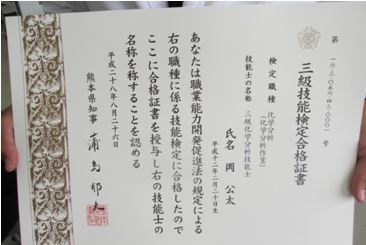 第 一六-三-〇五六-四三-〇〇〇一 号
三級技能検定合格証書
検定職種 化学分析
(化学分析作業)
技能士の名称 三級化学分析技能士
氏名 岡 公太
平成十二年二月二十日生
あなたは職業能力開発促進法の規定による
右の職種に係る技能検定に合格したので
ここに合格証書を授与し右の技能士の
名称を称することを認める
平成二十八年八月二十六日
熊本県知事 蒲島郁夫